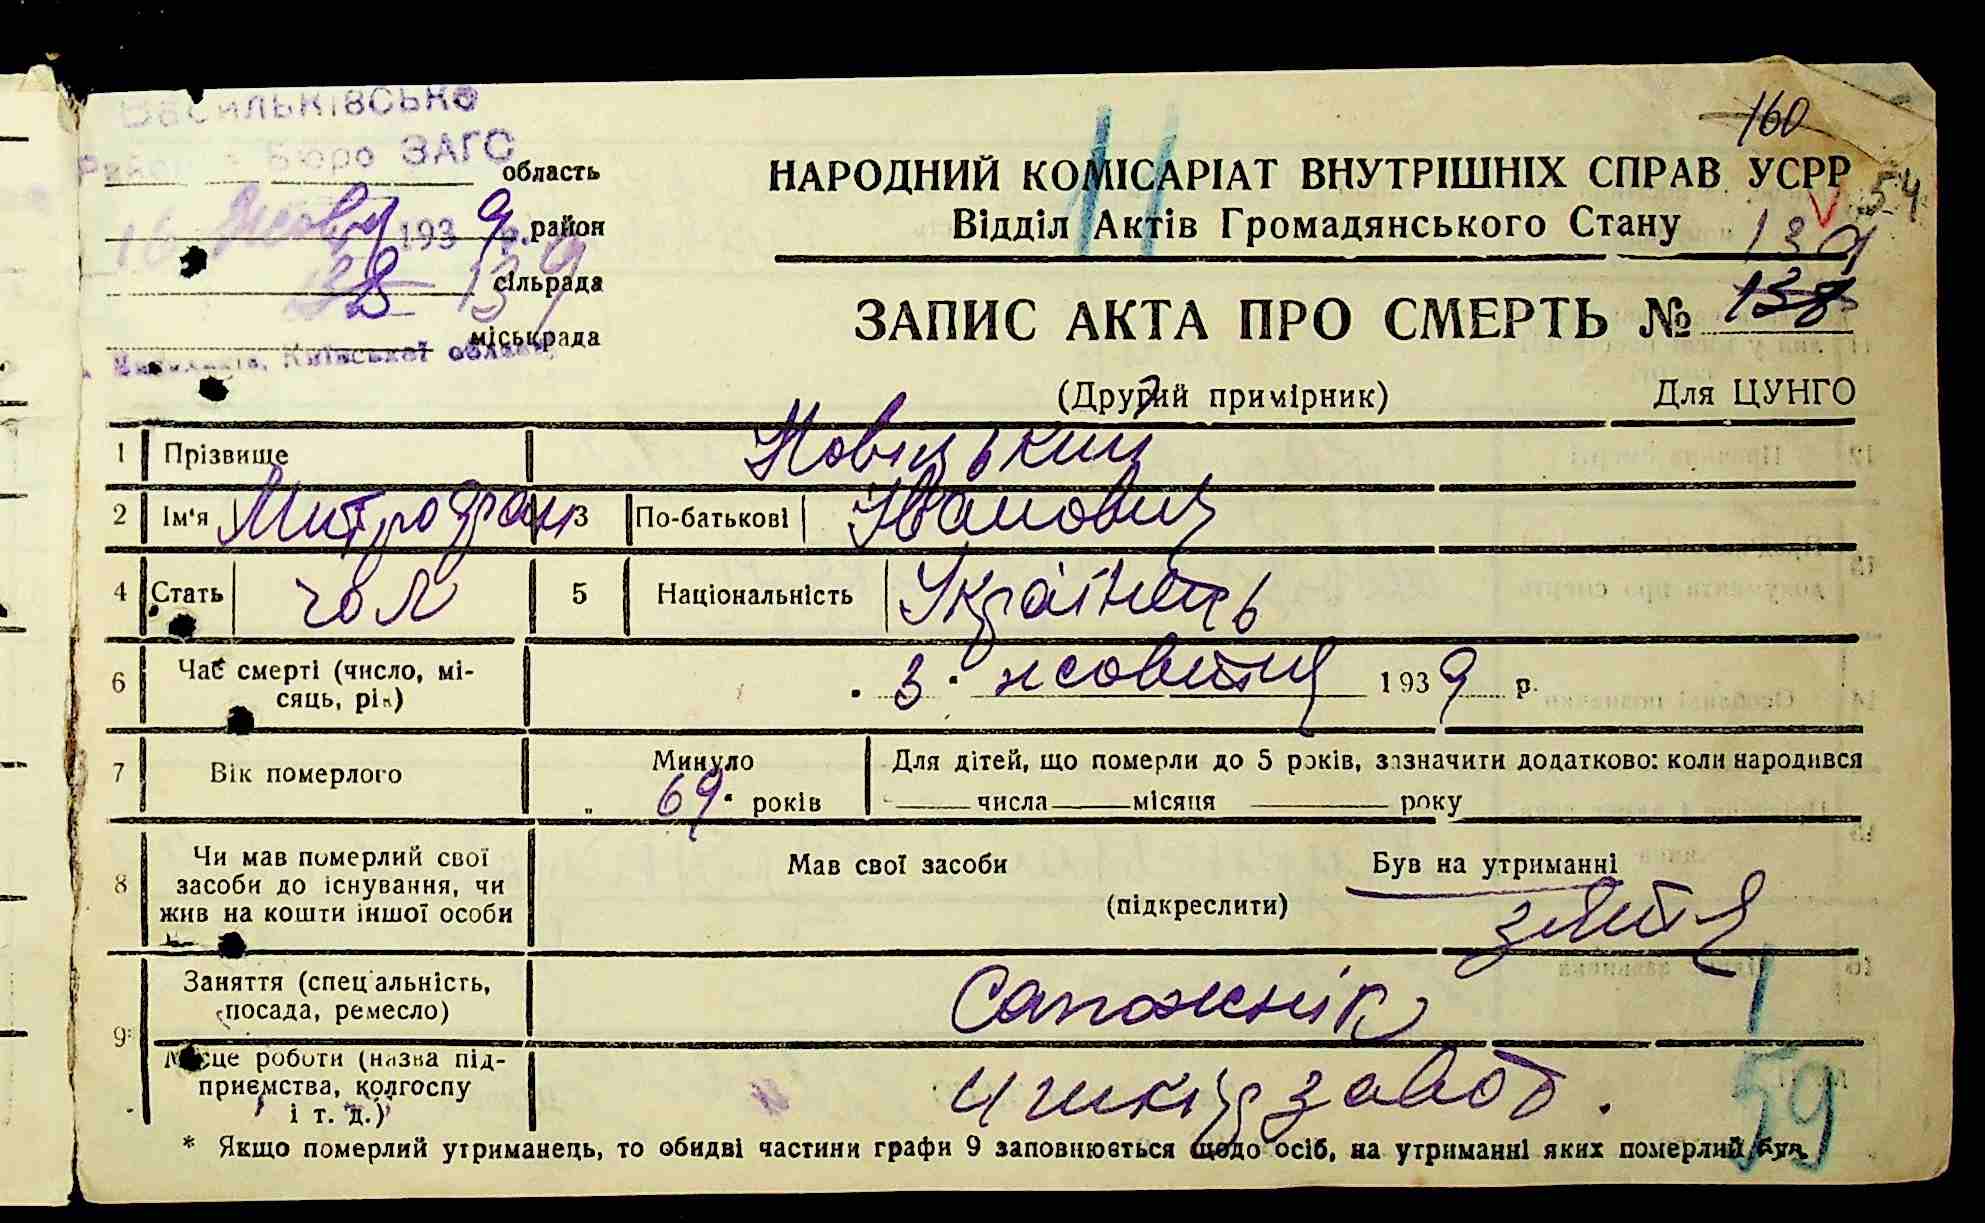 Васильківське
Бюро ЗАГС
область
16 Жовтня 1939 р. район
138 139 сільрада
міськрада
Київської області
160
54
НАРОДНИЙ КОМІСАРІАТ ВНУТРІШНІХ СПРАВ УСРР
Відділ Актів Громадянського Стану
139
ЗАПИС АКТА ПРО СМЕРТЬ № 138
(Другий примірник) Для ЦУНГО
1 Прізвище Новіцький
2 Ім'я Митрофан 3 По-батькові Іванович
4 Стать чол 5 Національність Українець
6 Час смерті (число, мі-
сяць, рік) 3 жовтня 1939 р.
7 Вік померлого Минуло 69 років Для дітей, що померли до 5 років, зазначити додатково: коли народився
числа місяця року
8 Чи мав померлий свої
засоби до існування, чи
жив на кошти іншої особи
Мав свої засоби Був на утриманні
(підкреслити) зятя
9 Заняття (спеціальність,
посада, ремесло) Сапожнік
Місце роботи (назва під-
приємства, колгоспу
і т. д.) завод.
59
* Якщо померлий утриманець, то обидві частини графи 9 заповнюється щодо осіб, на утриманні яких померлий був.